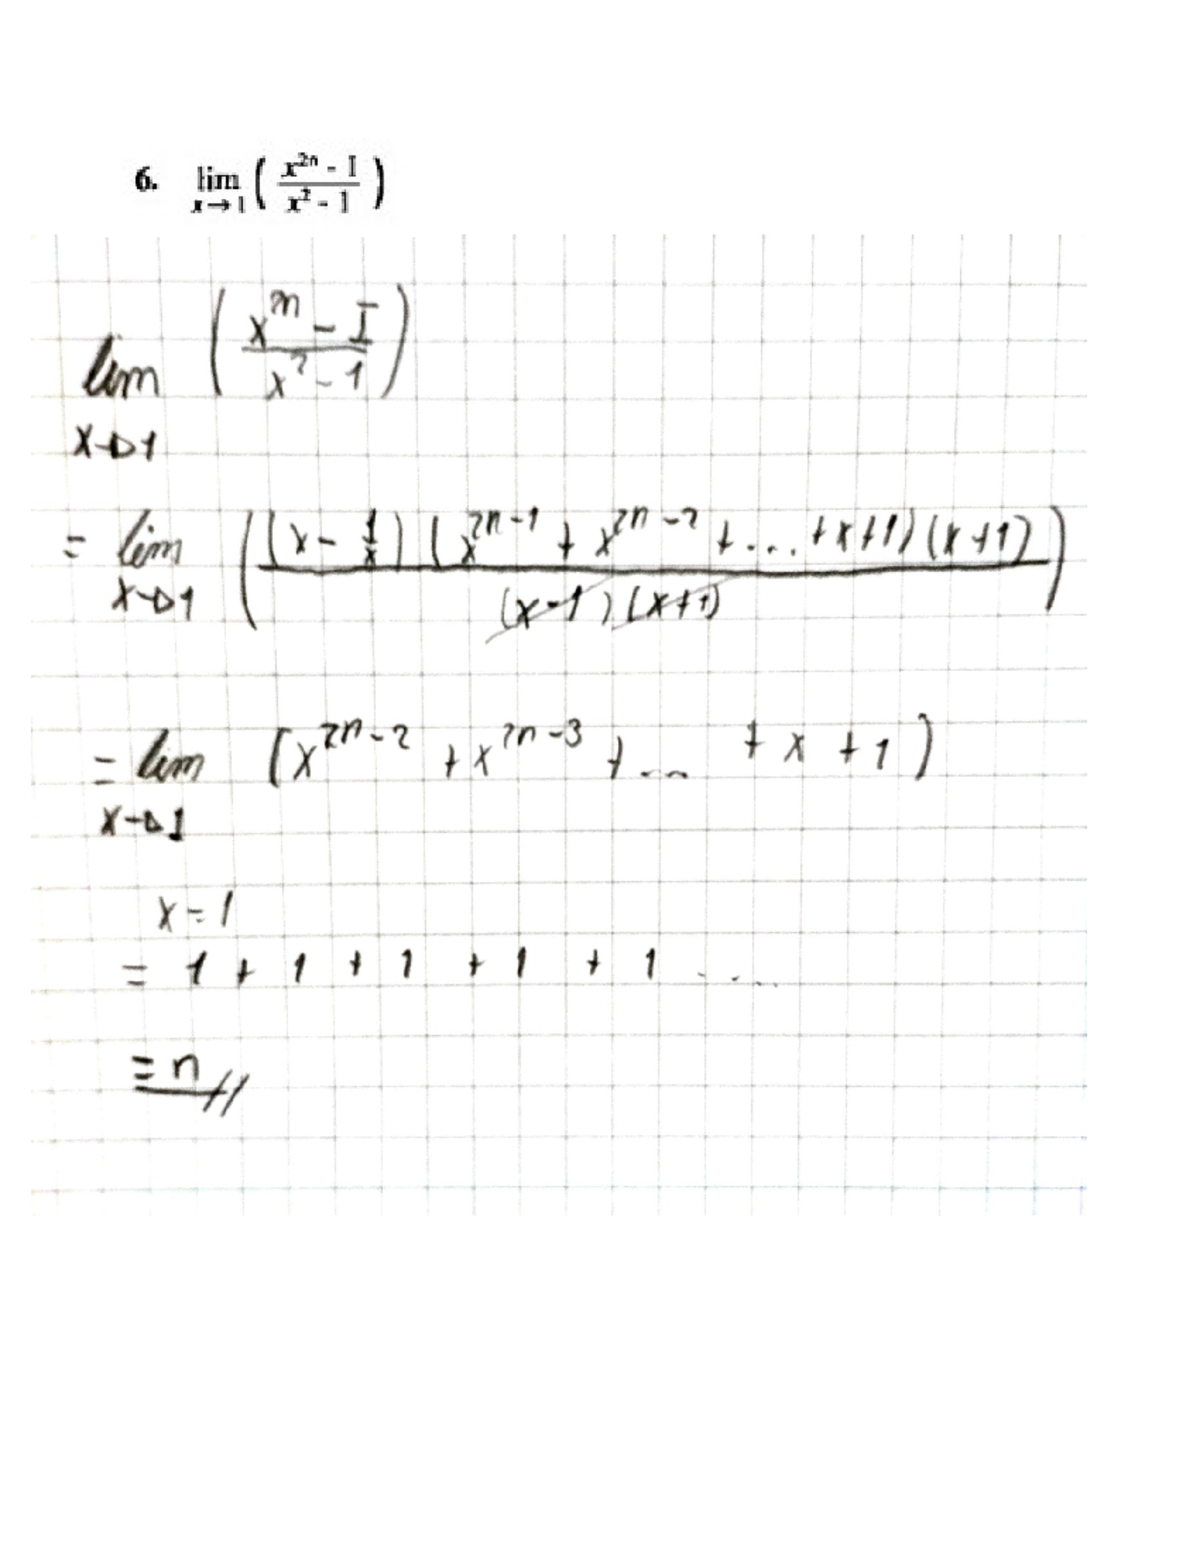 6. lim x→1 ( x^2n - 1 / x^2 - 1 )
lim x→1 ( x^2n - 1 / x^2 - 1 )
= lim x→1 ( (x - 1/x) (x^2n-1 + x^2n-2 + ... + x + 1) (x+1) / (x-1) (x+1) )
= lim x→1 (x^2n-2 + x^2n-3 + ... + x + 1)
x = 1
= 1 + 1 + 1 + 1 + 1 .....
= n //